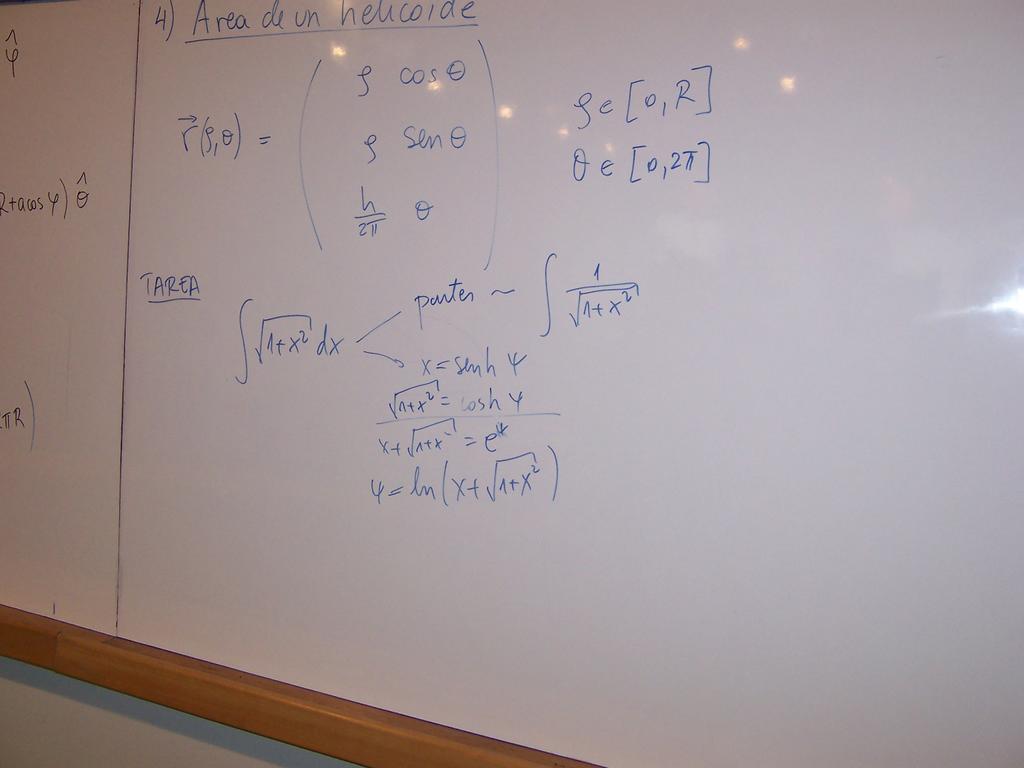 φ̂
R+a cos φ) θ̂
πR)
4) Area de un helicoide
r⃗(ρ,θ) = ( ρ cos θ
ρ sen θ
h/2π θ )
ρ ∈ [0, R]
θ ∈ [0, 2π]
TAREA
∫ √(1+x²) dx
partes ~ ∫ 1/√(1+x²)
x = senh ψ
√(1+x²) = cosh ψ
x + √(1+x²) = e^ψ
ψ = ln(x + √(1+x²))